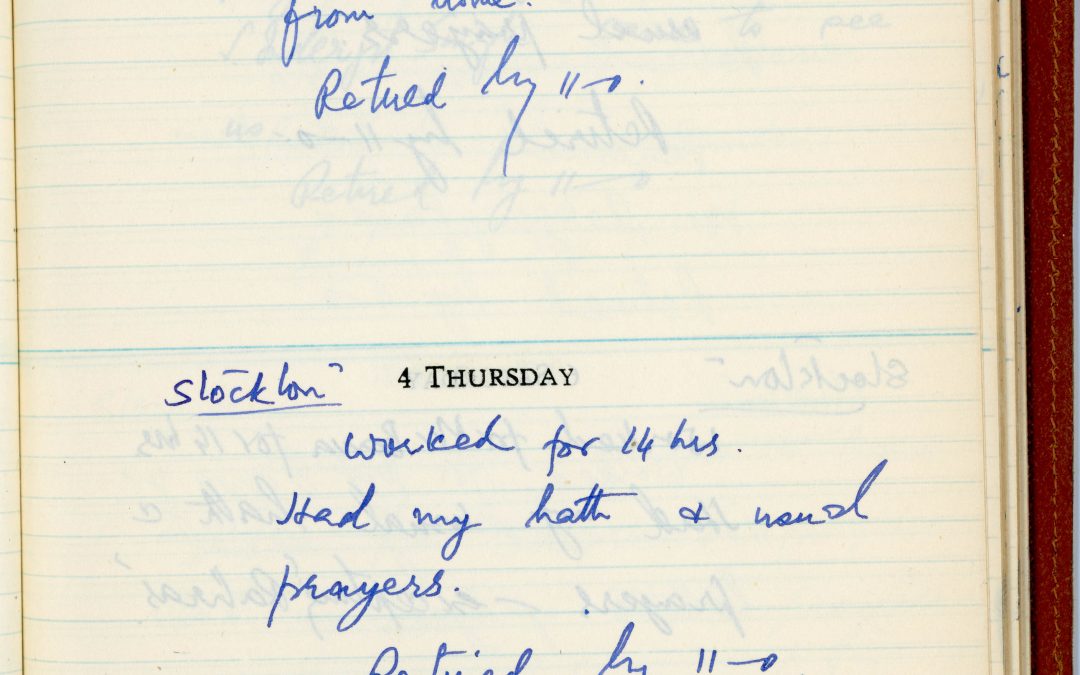 from home.
Retired by 11-0.
Stockton 4 THURSDAY
worked for 14 hrs.
Had my bath & usual
prayers.
Retired by 11-0